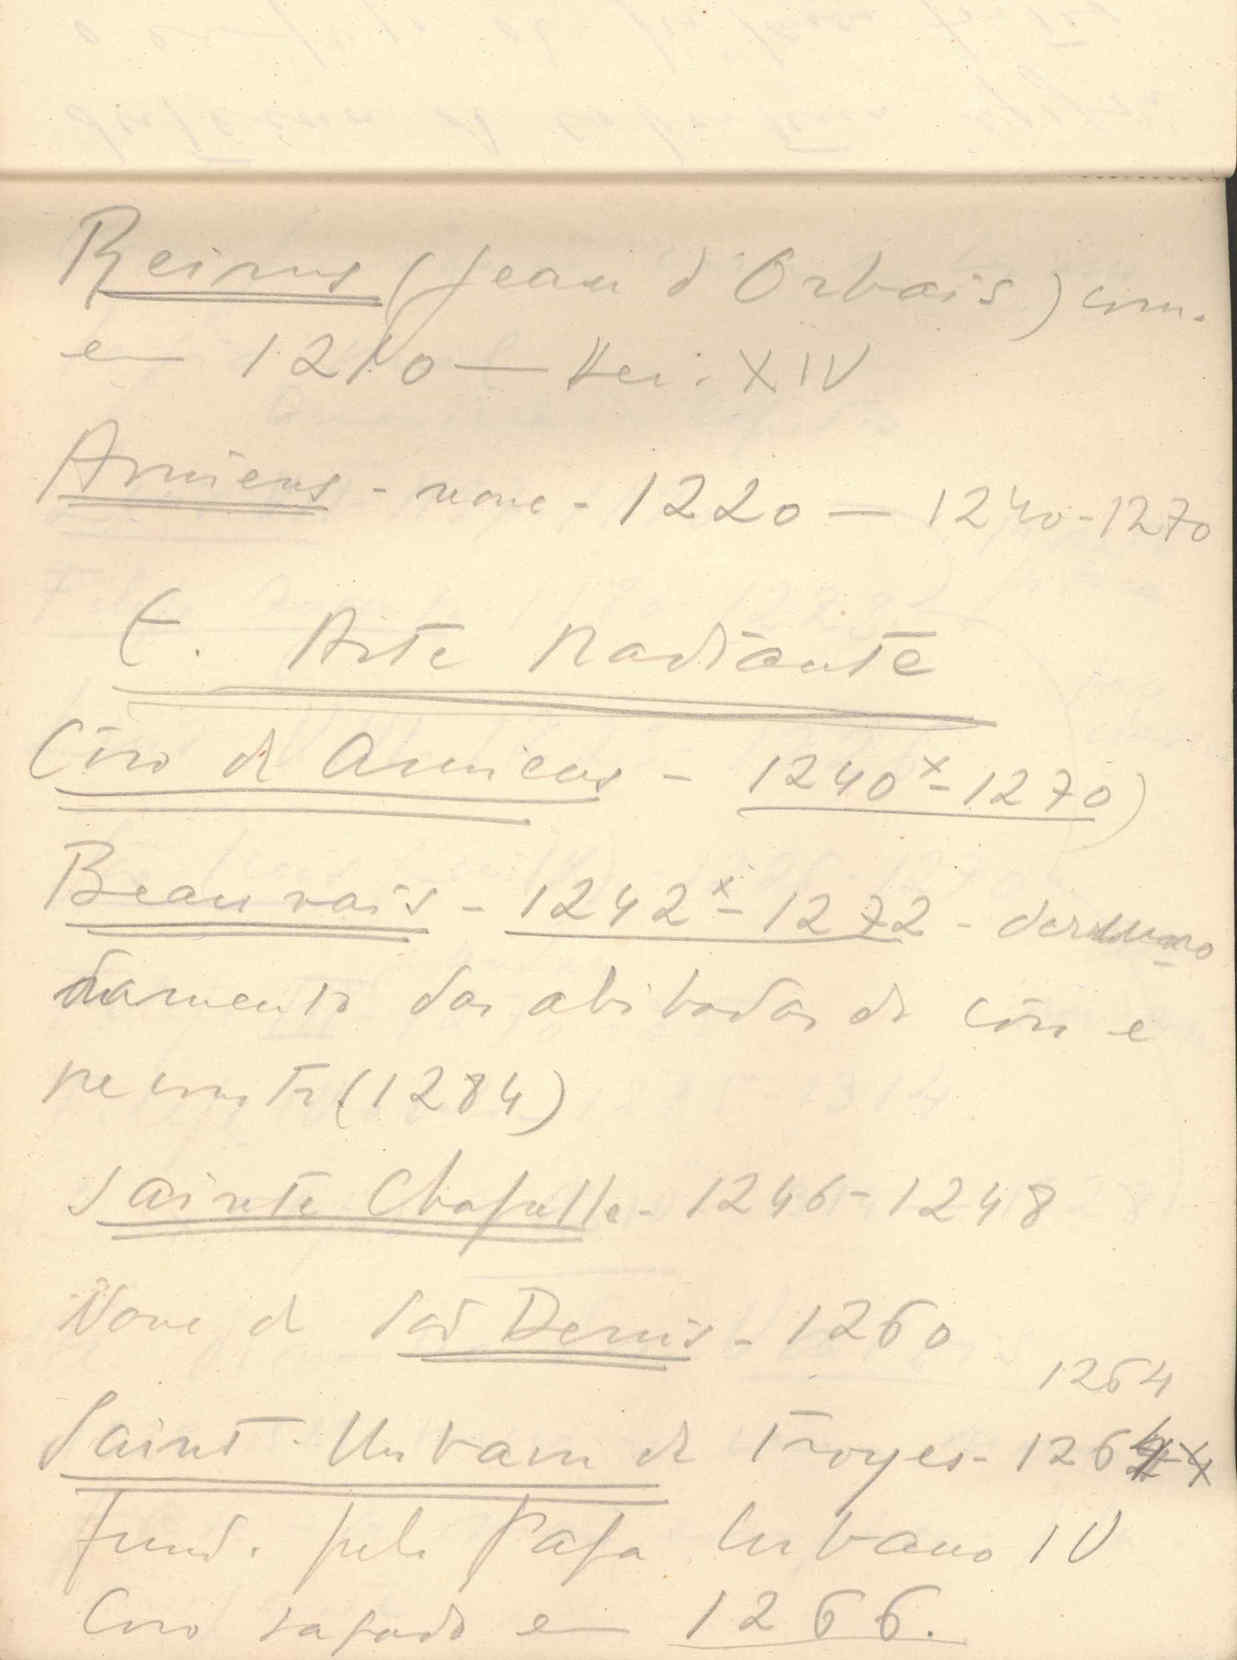 Reims (Jean d'Orbais) com.
em 1210 — XIV
Amiens - nave - 1220 — 1240-1270
E. Arte Radiante
Côro de Amiens - 1240x-1270)
Beauvais - 1242x-1272 - desmoro
namento das abóbadas do côro e
reconstr (1284)
Sainte Chapelle - 1246-1248
Nave de São Denis - 1260
1264
Saint-Urbain de Troyes - 1264 x
fund. pelo Papa Urbano IV
Coro sagrado em 1266.